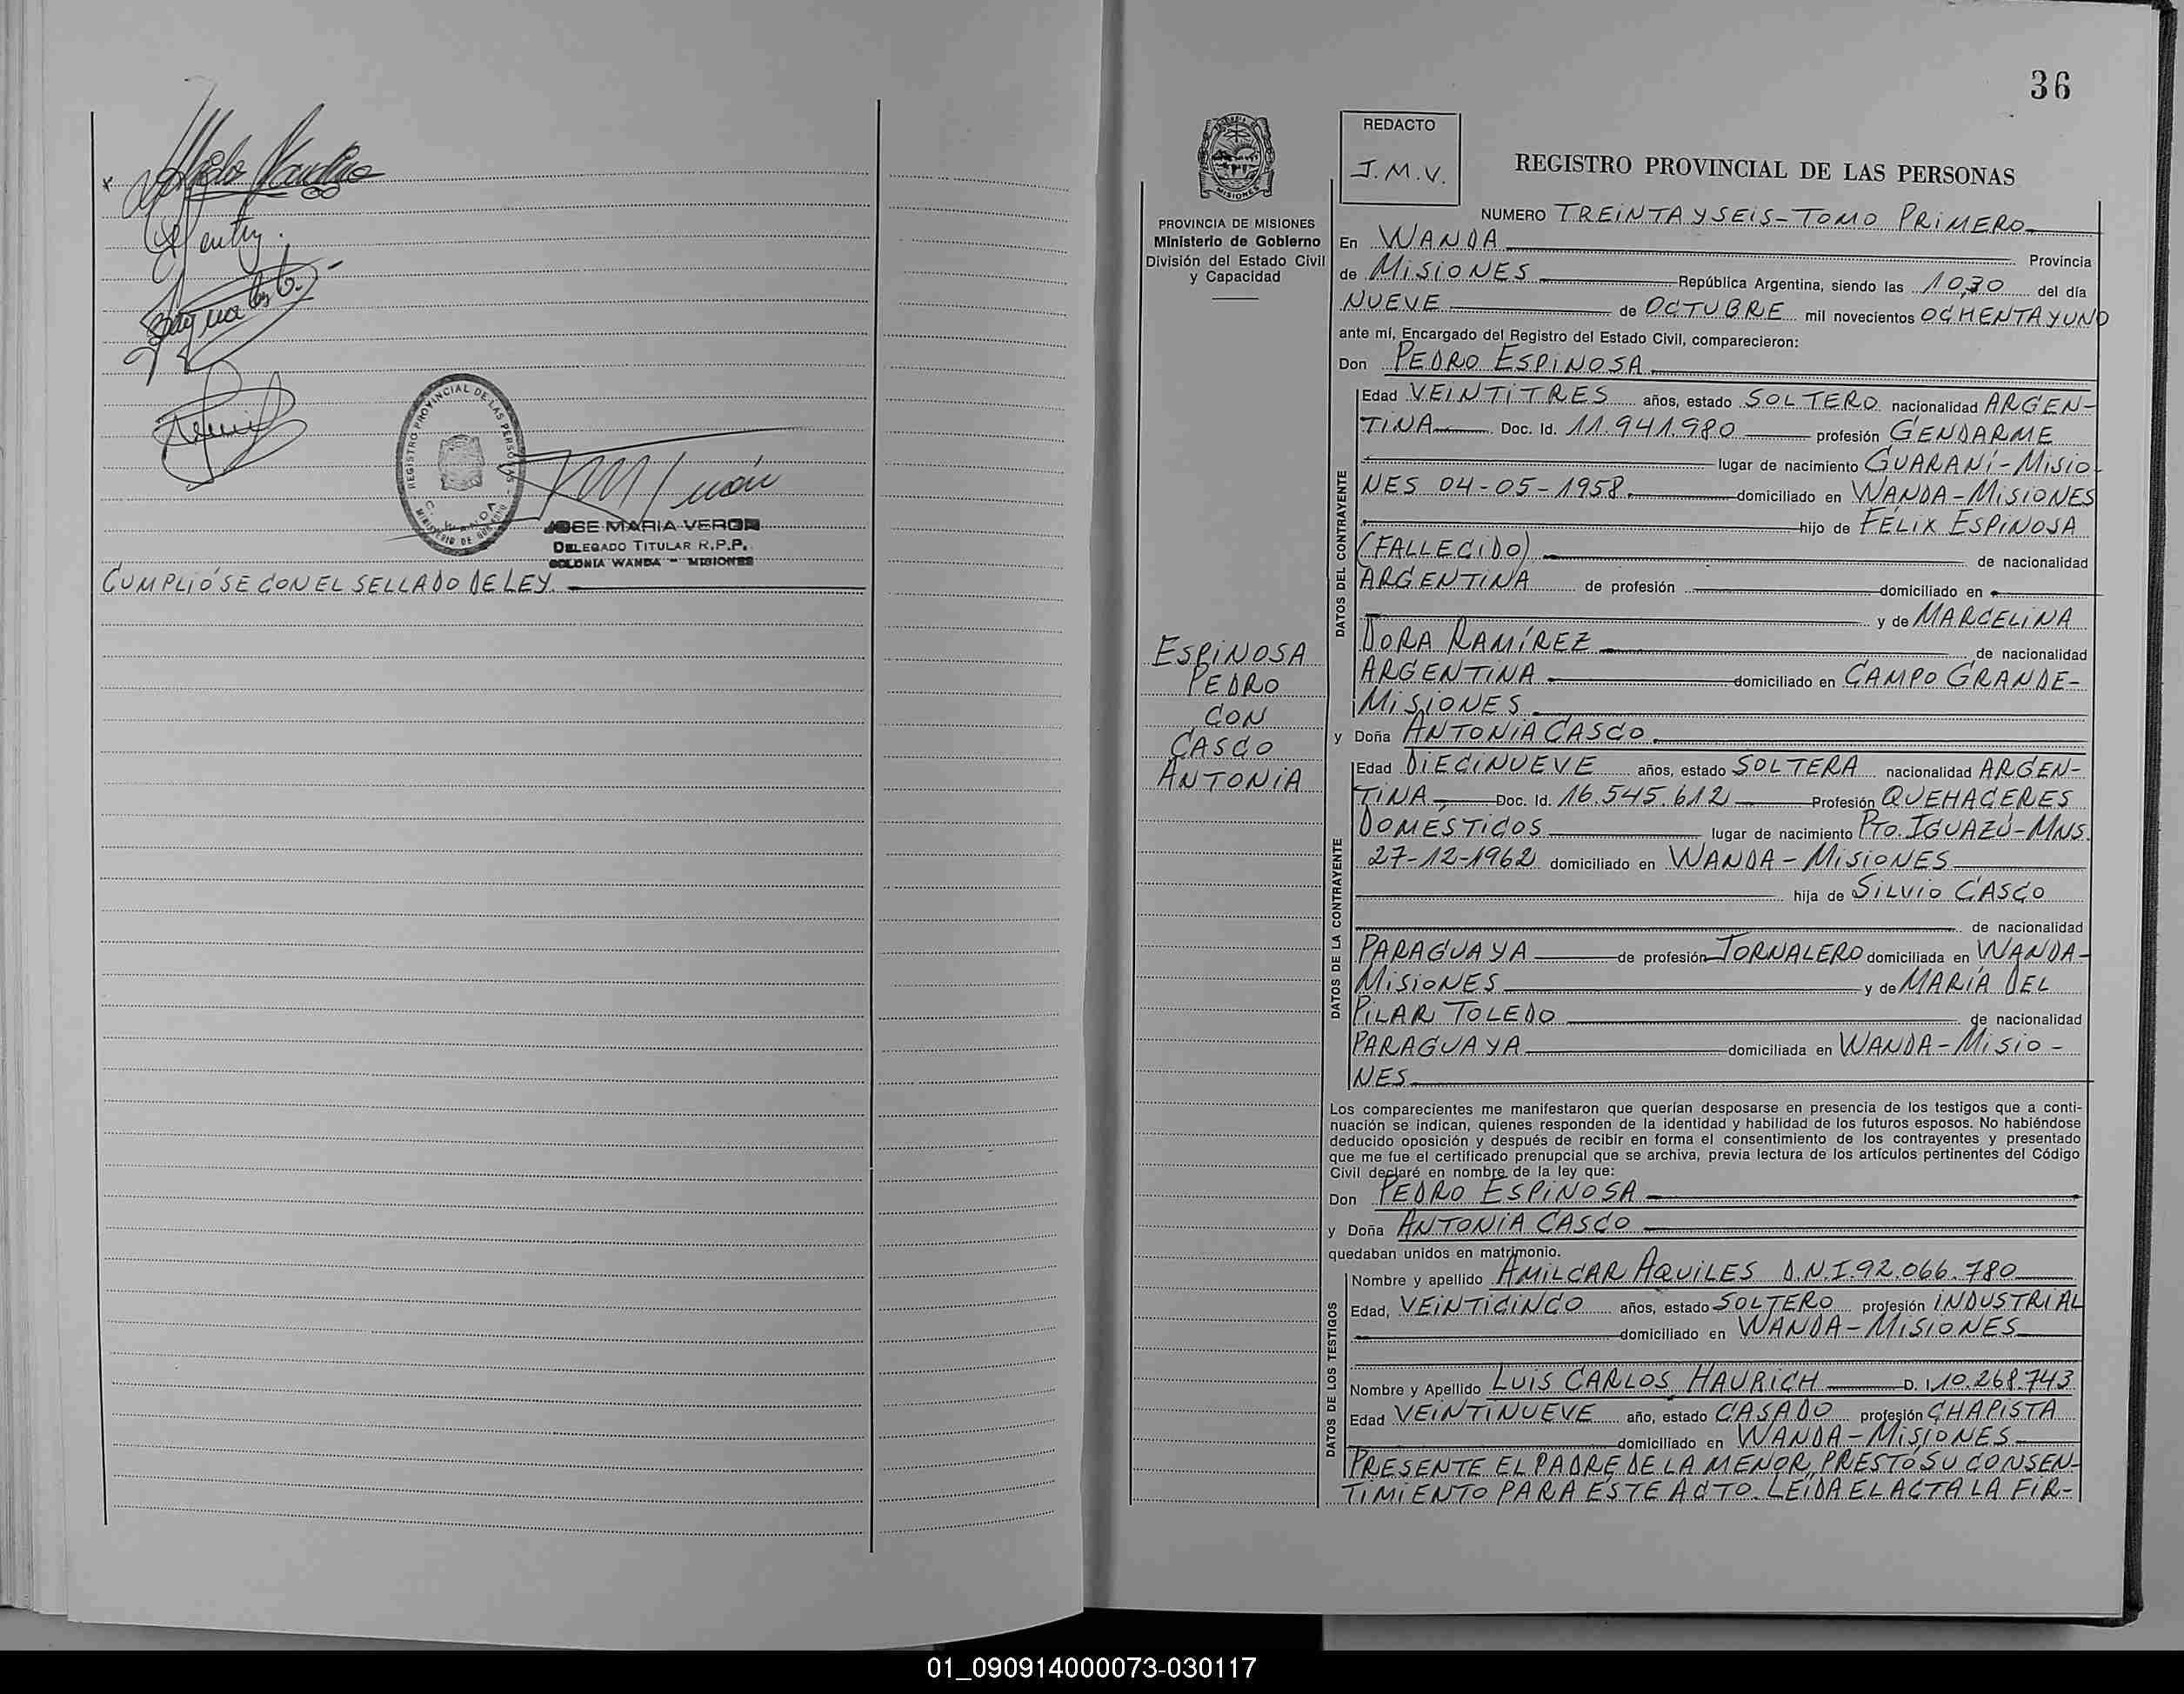 REGISTRO PROVINCIAL DE LAS PERSONAS
JOSE MARIA VERON
DELEGADO TITULAR R.P.P.
COLONIA WANDA - MISIONES
CUMPLIÓSE CON EL SELLADO DE LEY.
36
REDACTO
J.M.V.
REGISTRO PROVINCIAL DE LAS PERSONAS
MISIONES
PROVINCIA DE MISIONES
Ministerio de Gobierno
División del Estado Civil
y Capacidad
ESPINOSA
PEDRO
CON
CASCO
ANTONIA
NUMERO TREINTA Y SEIS - TOMO PRIMERO
En WANDA Provincia
de MISIONES República Argentina, siendo las 10,30 del día
NUEVE de OCTUBRE mil novecientos OCHENTA Y UNO
ante mí, Encargado del Registro del Estado Civil, comparecieron:
Don PEDRO ESPINOSA
DATOS DEL CONTRAYENTE
Edad VEINTITRES años, estado SOLTERO nacionalidad ARGEN-
TINA Doc. Id. 11.941.980 profesión GENDARME
lugar de nacimiento GUARANÍ - MISIO-
NES 04-05-1958. domiciliado en WANDA - MISIONES
hijo de FÉLIX ESPINOSA
(FALLECIDO) de nacionalidad
ARGENTINA de profesión domiciliado en
y de MARCELINA
DORA RAMÍREZ de nacionalidad
ARGENTINA domiciliado en CAMPO GRANDE-
MISIONES
y Doña ANTONIA CASCO.
DATOS DE LA CONTRAYENTE
Edad DIECINUEVE años, estado SOLTERA nacionalidad ARGEN-
TINA Doc. Id. 16.545.612 Profesión QUEHACERES
DOMÉSTICOS lugar de nacimiento PTO. IGUAZÚ - MNS.
27-12-1962 domiciliado en WANDA - MISIONES
hija de SILVIO CASCO
de nacionalidad
PARAGUAYA de profesión JORNALERO domiciliada en WANDA-
MISIONES y de MARÍA DEL
PILAR TOLEDO de nacionalidad
PARAGUAYA domiciliada en WANDA - MISIO-
NES
Los comparecientes me manifestaron que querían desposarse en presencia de los testigos que a conti-
nuación se indican, quienes responden de la identidad y habilidad de los futuros esposos. No habiéndose
deducido oposición y después de recibir en forma el consentimiento de los contrayentes y presentado
que me fue el certificado prenupcial que se archiva, previa lectura de los artículos pertinentes del Código
Civil declaré en nombre de la ley que:
Don PEDRO ESPINOSA
y Doña ANTONIA CASCO
quedaban unidos en matrimonio.
DATOS DE LOS TESTIGOS
Nombre y apellido AMILCAR AQUILES D.N.I. 92.066.780
Edad, VEINTICINCO años, estado SOLTERO profesión INDUSTRIAL
domiciliado en WANDA - MISIONES
Nombre y Apellido LUIS CARLOS HAURICH D. I 10.268.743
Edad VEINTINUEVE año, estado CASADO profesión CHAPISTA
domiciliado en WANDA - MISIONES
PRESENTE EL PADRE DE LA MENOR, PRESTÓ SU CONSEN-
TIMIENTO PARA ESTE ACTO. LEÍDA EL ACTA LA FIR-
01_090914000073-030117